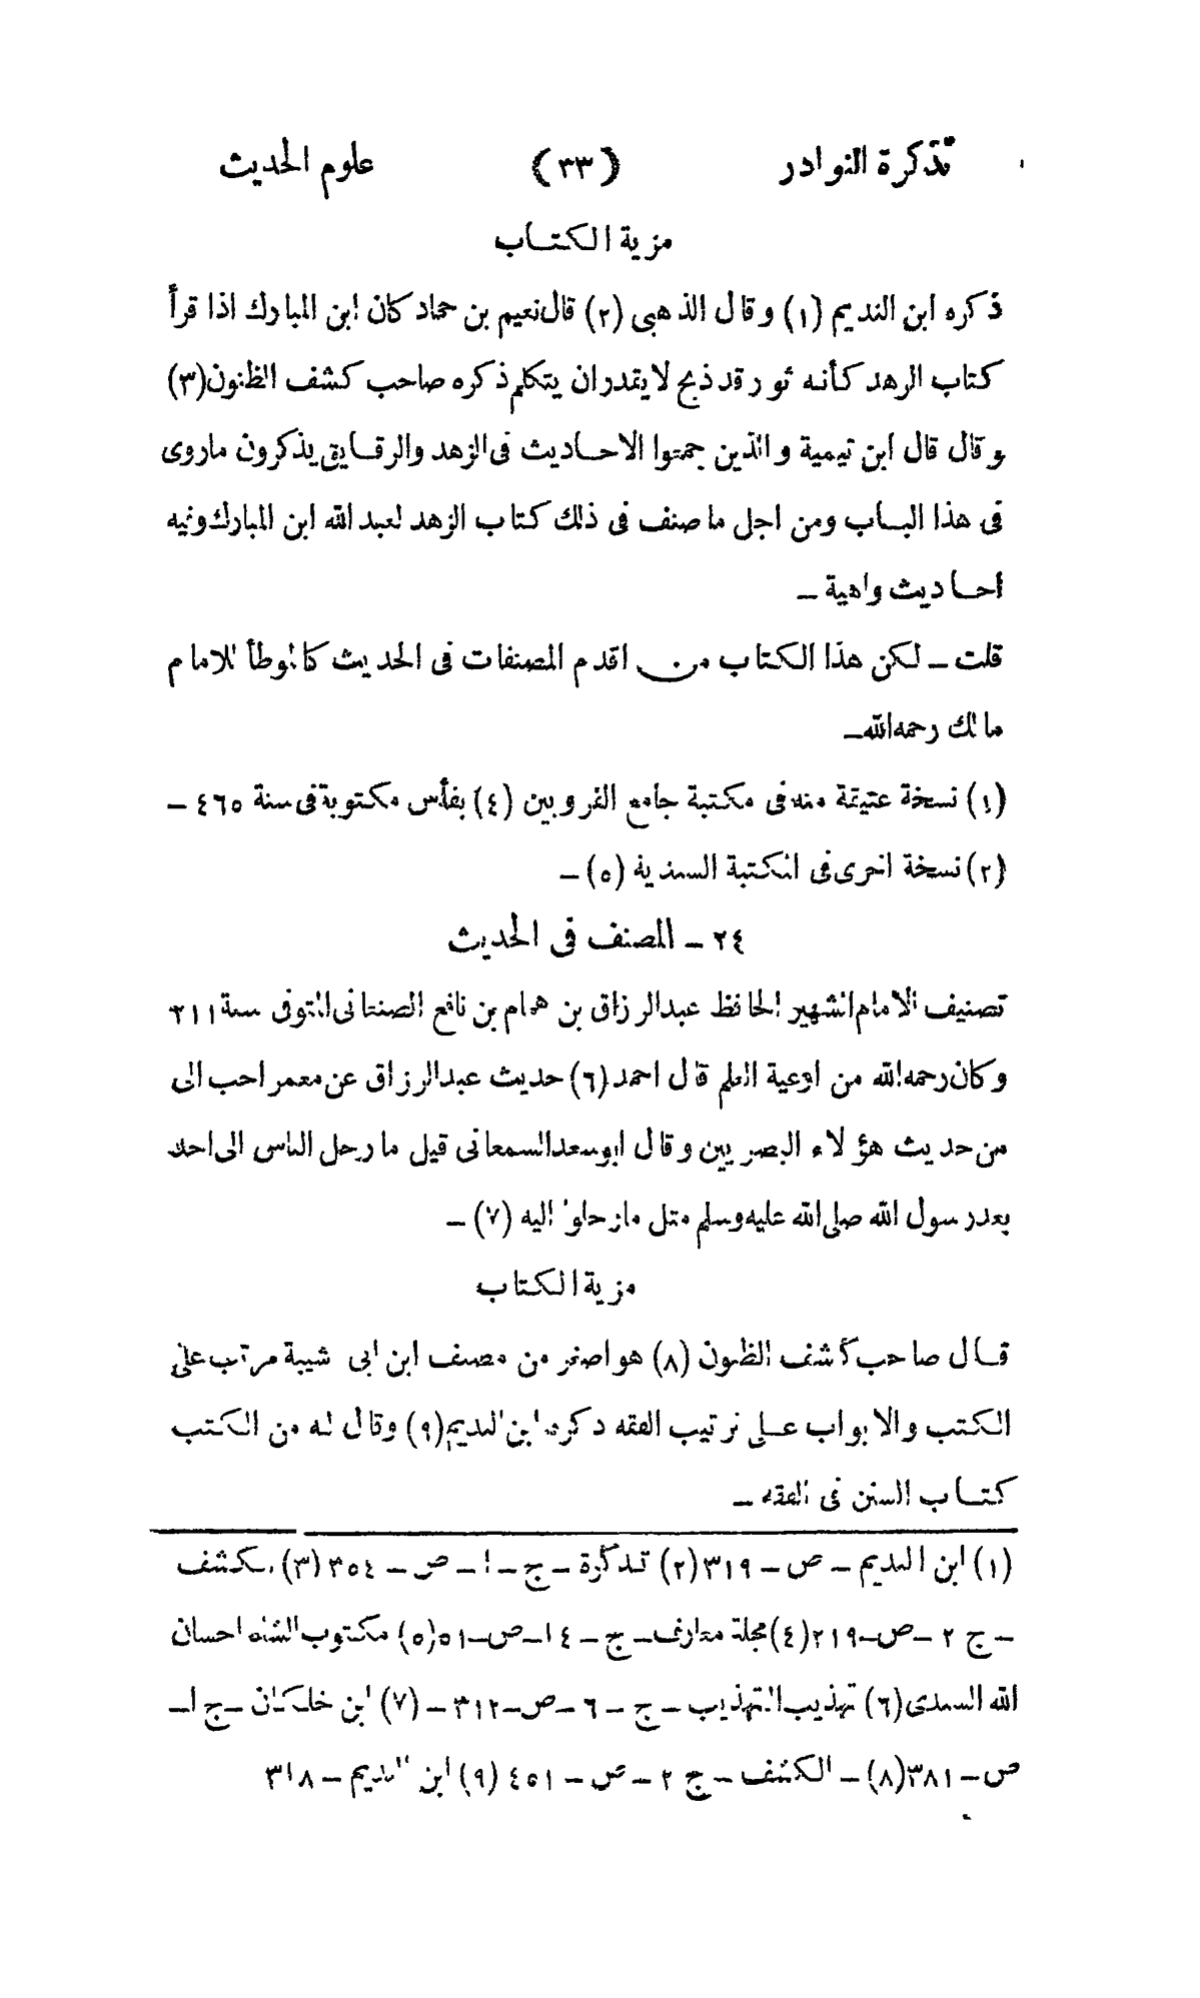 تذكرة النوادر (٣٣) علوم الحديث
مزية الكتاب
ذكره ابن النديم (١) وقال الذهبى (٢) قال نعيم بن حماد كان ابن المبارك اذا قرأ
كتاب الزهد كأنه ثور قد ذبح لا يقدر ان يتكلم ذكره صاحب كشف الظنون (٣)
وقال قال ابن تيمية والذين جمعوا الاحاديث فى الزهد والرقايق يذكرون ماروى
فى هذا الباب ومن اجل ما صنف فى ذلك كتاب الزهد لعبد الله ابن المبارك وفيه
احاديث واهية ـ
قلت ـ لكن هذا الكتاب من اقدم المصنفات فى الحديث كالموطأ للامام
مالك رحمه الله ـ
(١) نسخة عتيقة منه فى مكتبة جامع القرويين (٤) بفأس مكتوبة فى سنة ٤٦٥ ـ
(٢) نسخة اخرى فى المكتبة السندية (٥) ـ
٢٤ ـ المصنف فى الحديث
تصنيف الامام الشهير الحافظ عبدالرزاق بن همام بن نافع الصنعانى المتوفى سنة ٢١١
وكان رحمه الله من اوعية العلم قال احمد (٦) حديث عبدالرزاق عن معمر احب الى
من حديث هؤلاء البصريين وقال ابوسعد السمعانى قيل ما رحل الناس الى احد
بعد رسول الله صلى الله عليه وسلم مثل ما رحلوا اليه (٧) ـ
مزية الكتاب
قال صاحب كشف الظنون (٨) هو اصغر من مصنف ابن ابى شيبة مرتب على
الكتب والابواب على ترتيب الفقه ذكره ابن النديم (٩) وقال له من الكتب
كتاب السنن فى الفقه ـ
(١) ابن النديم ـ ص ـ ٣١٩ (٢) تذكرة ـ ج ـ ١ ـ ص ـ ٣٥٤ (٣) كشف
ـ ج ٢ ـ ص ـ ٢١٩ (٤) مجلة معارف ـ ج ـ ١٤ ـ ص ـ ٥١ (٥) مكتوب الشاه احسان
الله السندى (٦) تهذيب التهذيب ـ ج ـ ٦ ـ ص ـ ٣١٢ ـ (٧) ابن خلكان ـ ج ١ ـ
ص ـ ٣٨١ (٨) ـ الكشف ـ ج ٢ ـ ص ـ ٤٥١ (٩) ابن النديم ـ ٣١٨